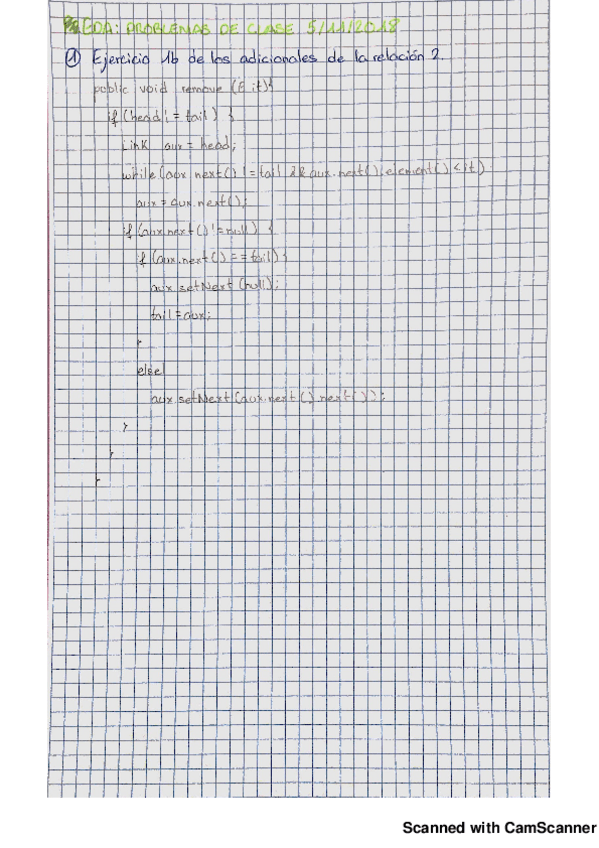 EDA: PROBLEMAS DE CLASE 5/11/2018
① Ejercicio 1b de los adicionales de la relación 2.
public void remove (E it){
if (head != tail) {
Link aux = head;
while (aux.next() != tail && aux.next().element() < it)
aux = aux.next();
if (aux.next() != null) {
if (aux.next() == tail) {
aux.setNext(null);
tail = aux;
}
else
aux.setNext(aux.next().next());
}
}
}
Scanned with CamScanner